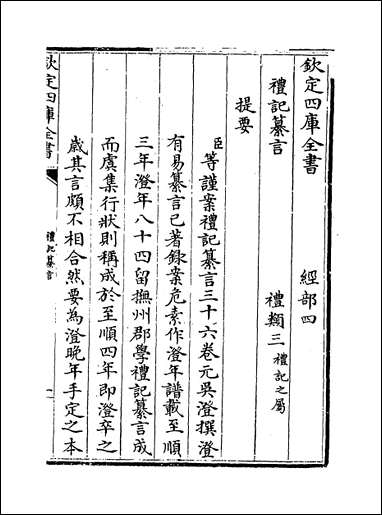 欽定四庫全書　經部四
禮記纂言　禮類三禮記之屬
提要
臣等謹案禮記纂言三十六卷元吳澄撰澄
有易纂言已著錄案危素作澄年譜載至順
三年澄年八十四留撫州郡學禮記纂言成
而虞集行狀則稱成於至順四年即澄卒之
歲其言頗不相合然要為澄晚年手定之本
欽定四庫全書
禮記纂言
一